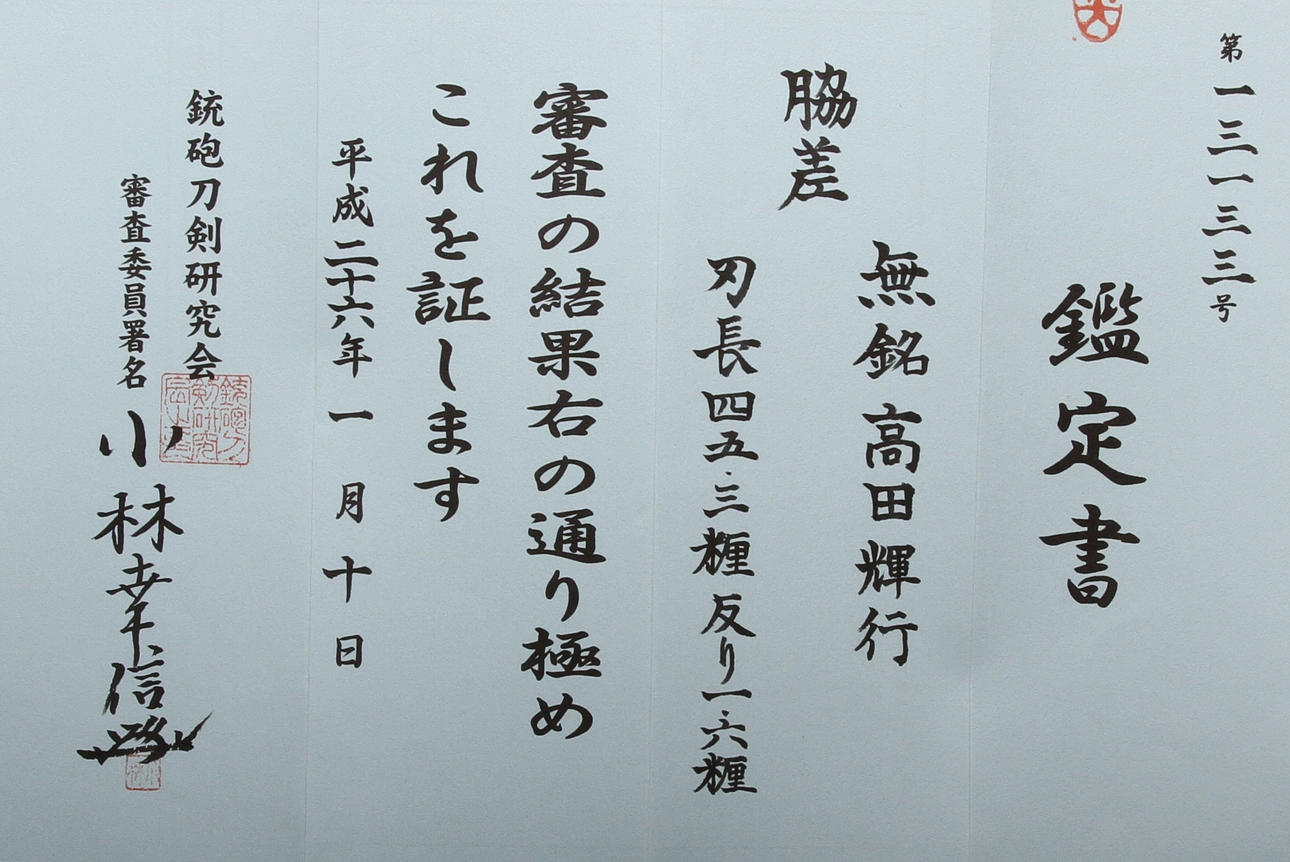 第一三一三三号
鑑定書
無銘 高田輝行
脇差
刃長四五・三糎 反り一・六糎
審査の結果右の通り極め
これを証します
平成二十六年 一 月 十 日
銃砲刀剣研究会
審査委員署名 小林幸信